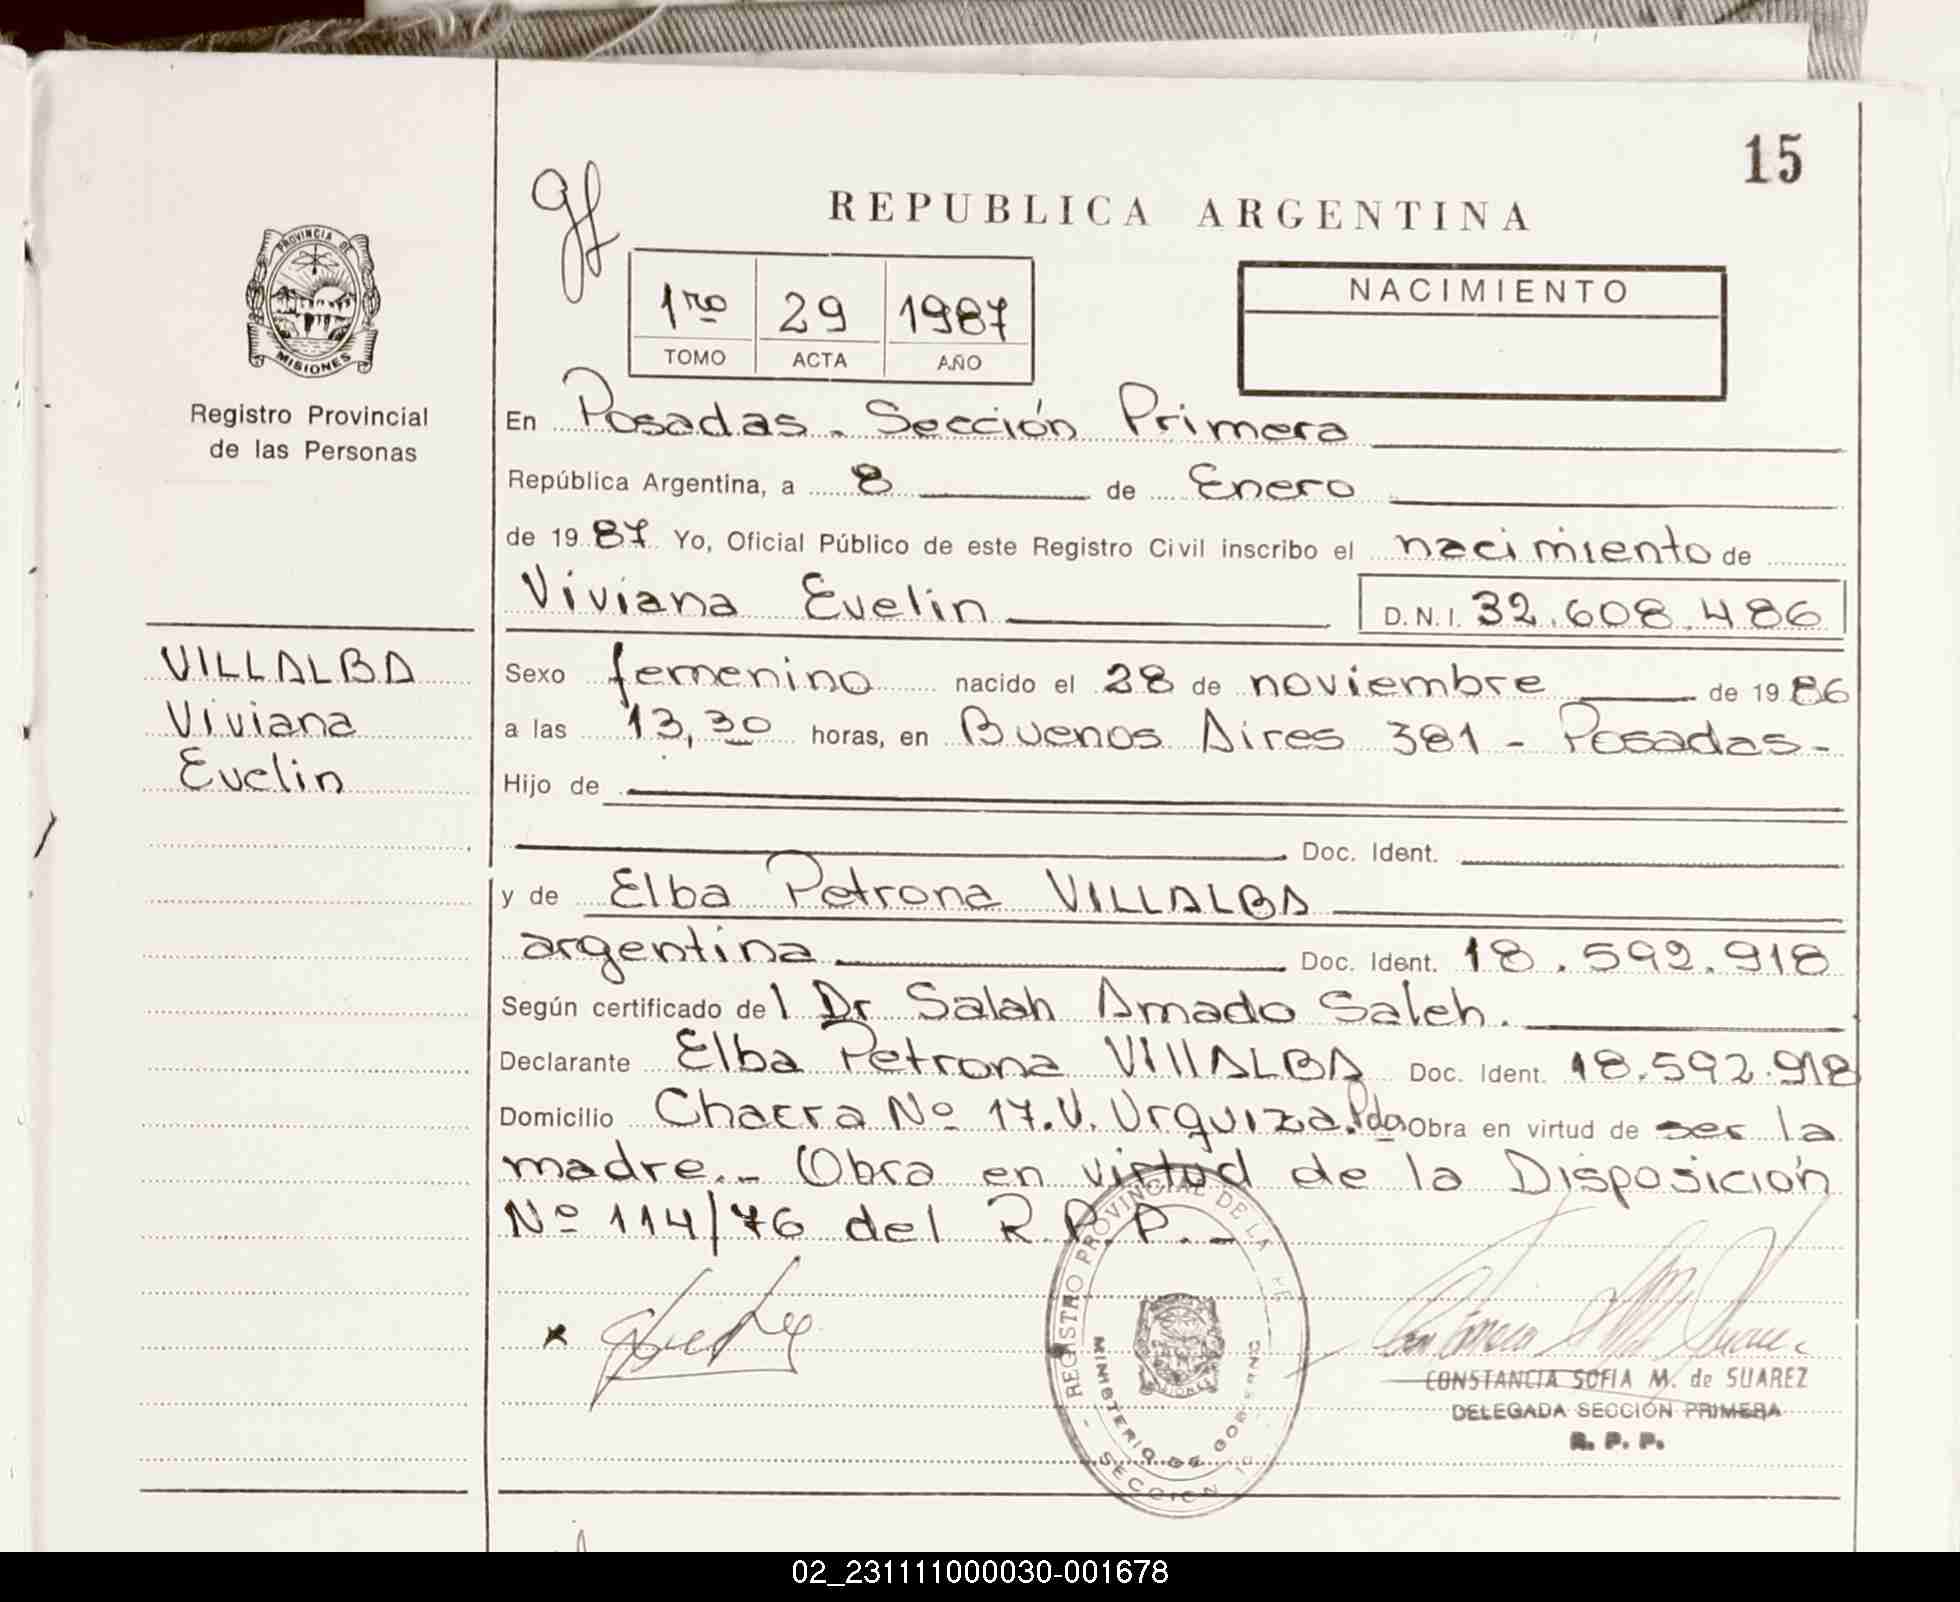 15
REPUBLICA ARGENTINA
PROVINCIA DE
MISIONES
1ro 29 1987
TOMO ACTA AÑO
NACIMIENTO
Registro Provincial
de las Personas
En Posadas - Sección Primera
República Argentina, a 8 de Enero
de 19 87 Yo, Oficial Público de este Registro Civil inscribo el nacimiento de
Viviana Evelin D.N.I. 32.608.486
VILLALBA
Viviana
Evelin
Sexo femenino nacido el 28 de noviembre de 19 86
a las 13,30 horas, en Buenos Aires 381 - Posadas-
Hijo de
Doc. Ident.
y de Elba Petrona VILLALBA
argentina Doc. Ident. 18.592.918
Según certificado del Dr Salah Amado Saleh.
Declarante Elba Petrona VIllALBA Doc. Ident. 18.592.918
Domicilio Chacra Nº 17.V. Urquiza.Pdas Obra en virtud de ser la
madre.- Obra en virtud de la Disposición
Nº 114/76 del R.P.P.-
REGISTRO PROVINCIAL DE LA
MINISTERIO DE GOBIERNO
SECCION
CONSTANCIA SOFIA M. de SUAREZ
DELEGADA SECCIÓN PRIMERA
R. P. P.
02_231111000030-001678